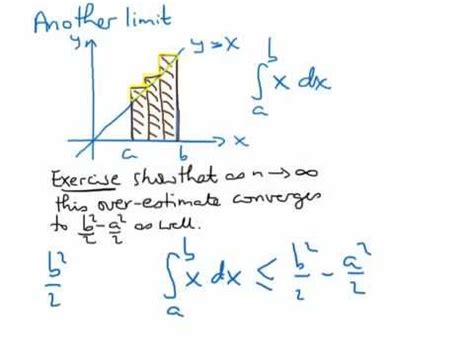 Another limit
y
y=x
∫_a^b x dx
x
a b
Exercise show that as n→∞
this over-estimate converges
to b²/2 - a²/2 as well.
b²/2
∫_a^b x dx ≤ b²/2 - a²/2